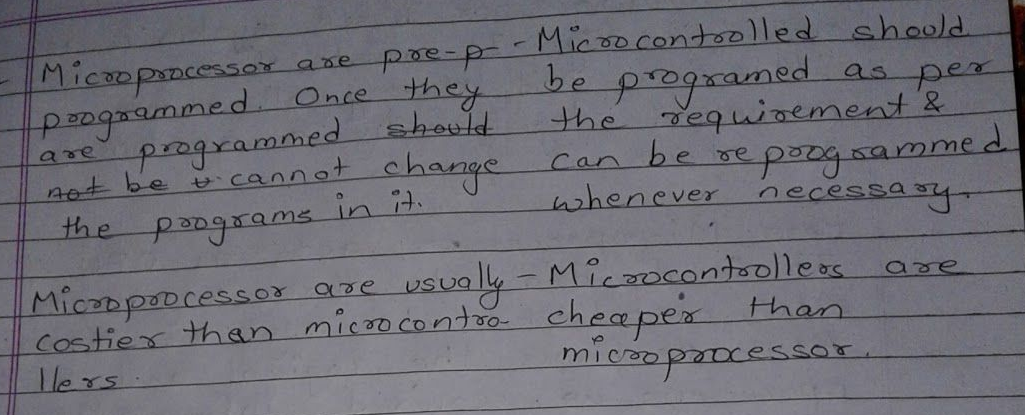 - Microprocessor are pre-p-
programmed. Once they
are programmed should
not be cannot change
the programs in it.
- Microcontrolled should
be programed as per
the requirement &
can be reprogrammed
whenever necessary.
Microprocessor are usually
costier than microcontro-
llers.
- Microcontrollers are
cheaper than
microprocessor.